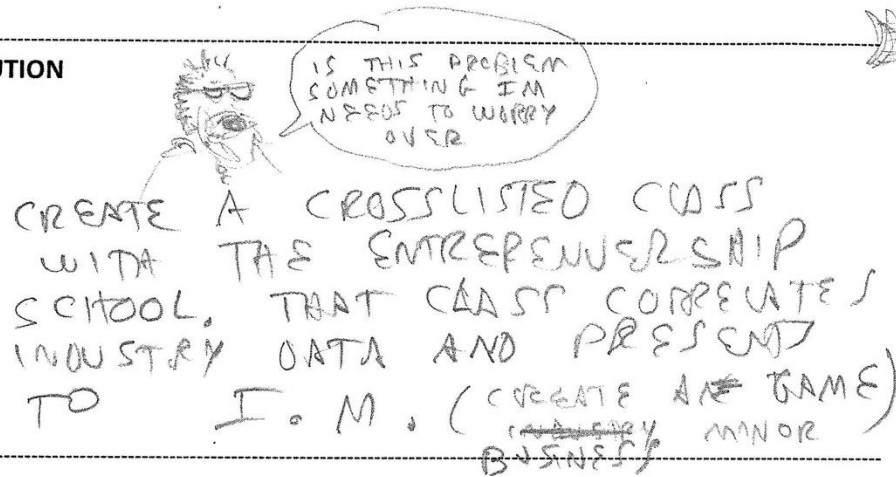 UTION
IS THIS PROBLEM
SOMETHING IM
NEEDS TO WORRY
OVER
CREATE A CROSSLISTED CLASS
WITH THE ENTREPENUERSHIP
SCHOOL. THAT CLASS CORRELATES
INDUSTRY DATA AND PRESENTS
TO I.M. (CREATE A GAME)
INDUSTRY MINOR
BUSINESS